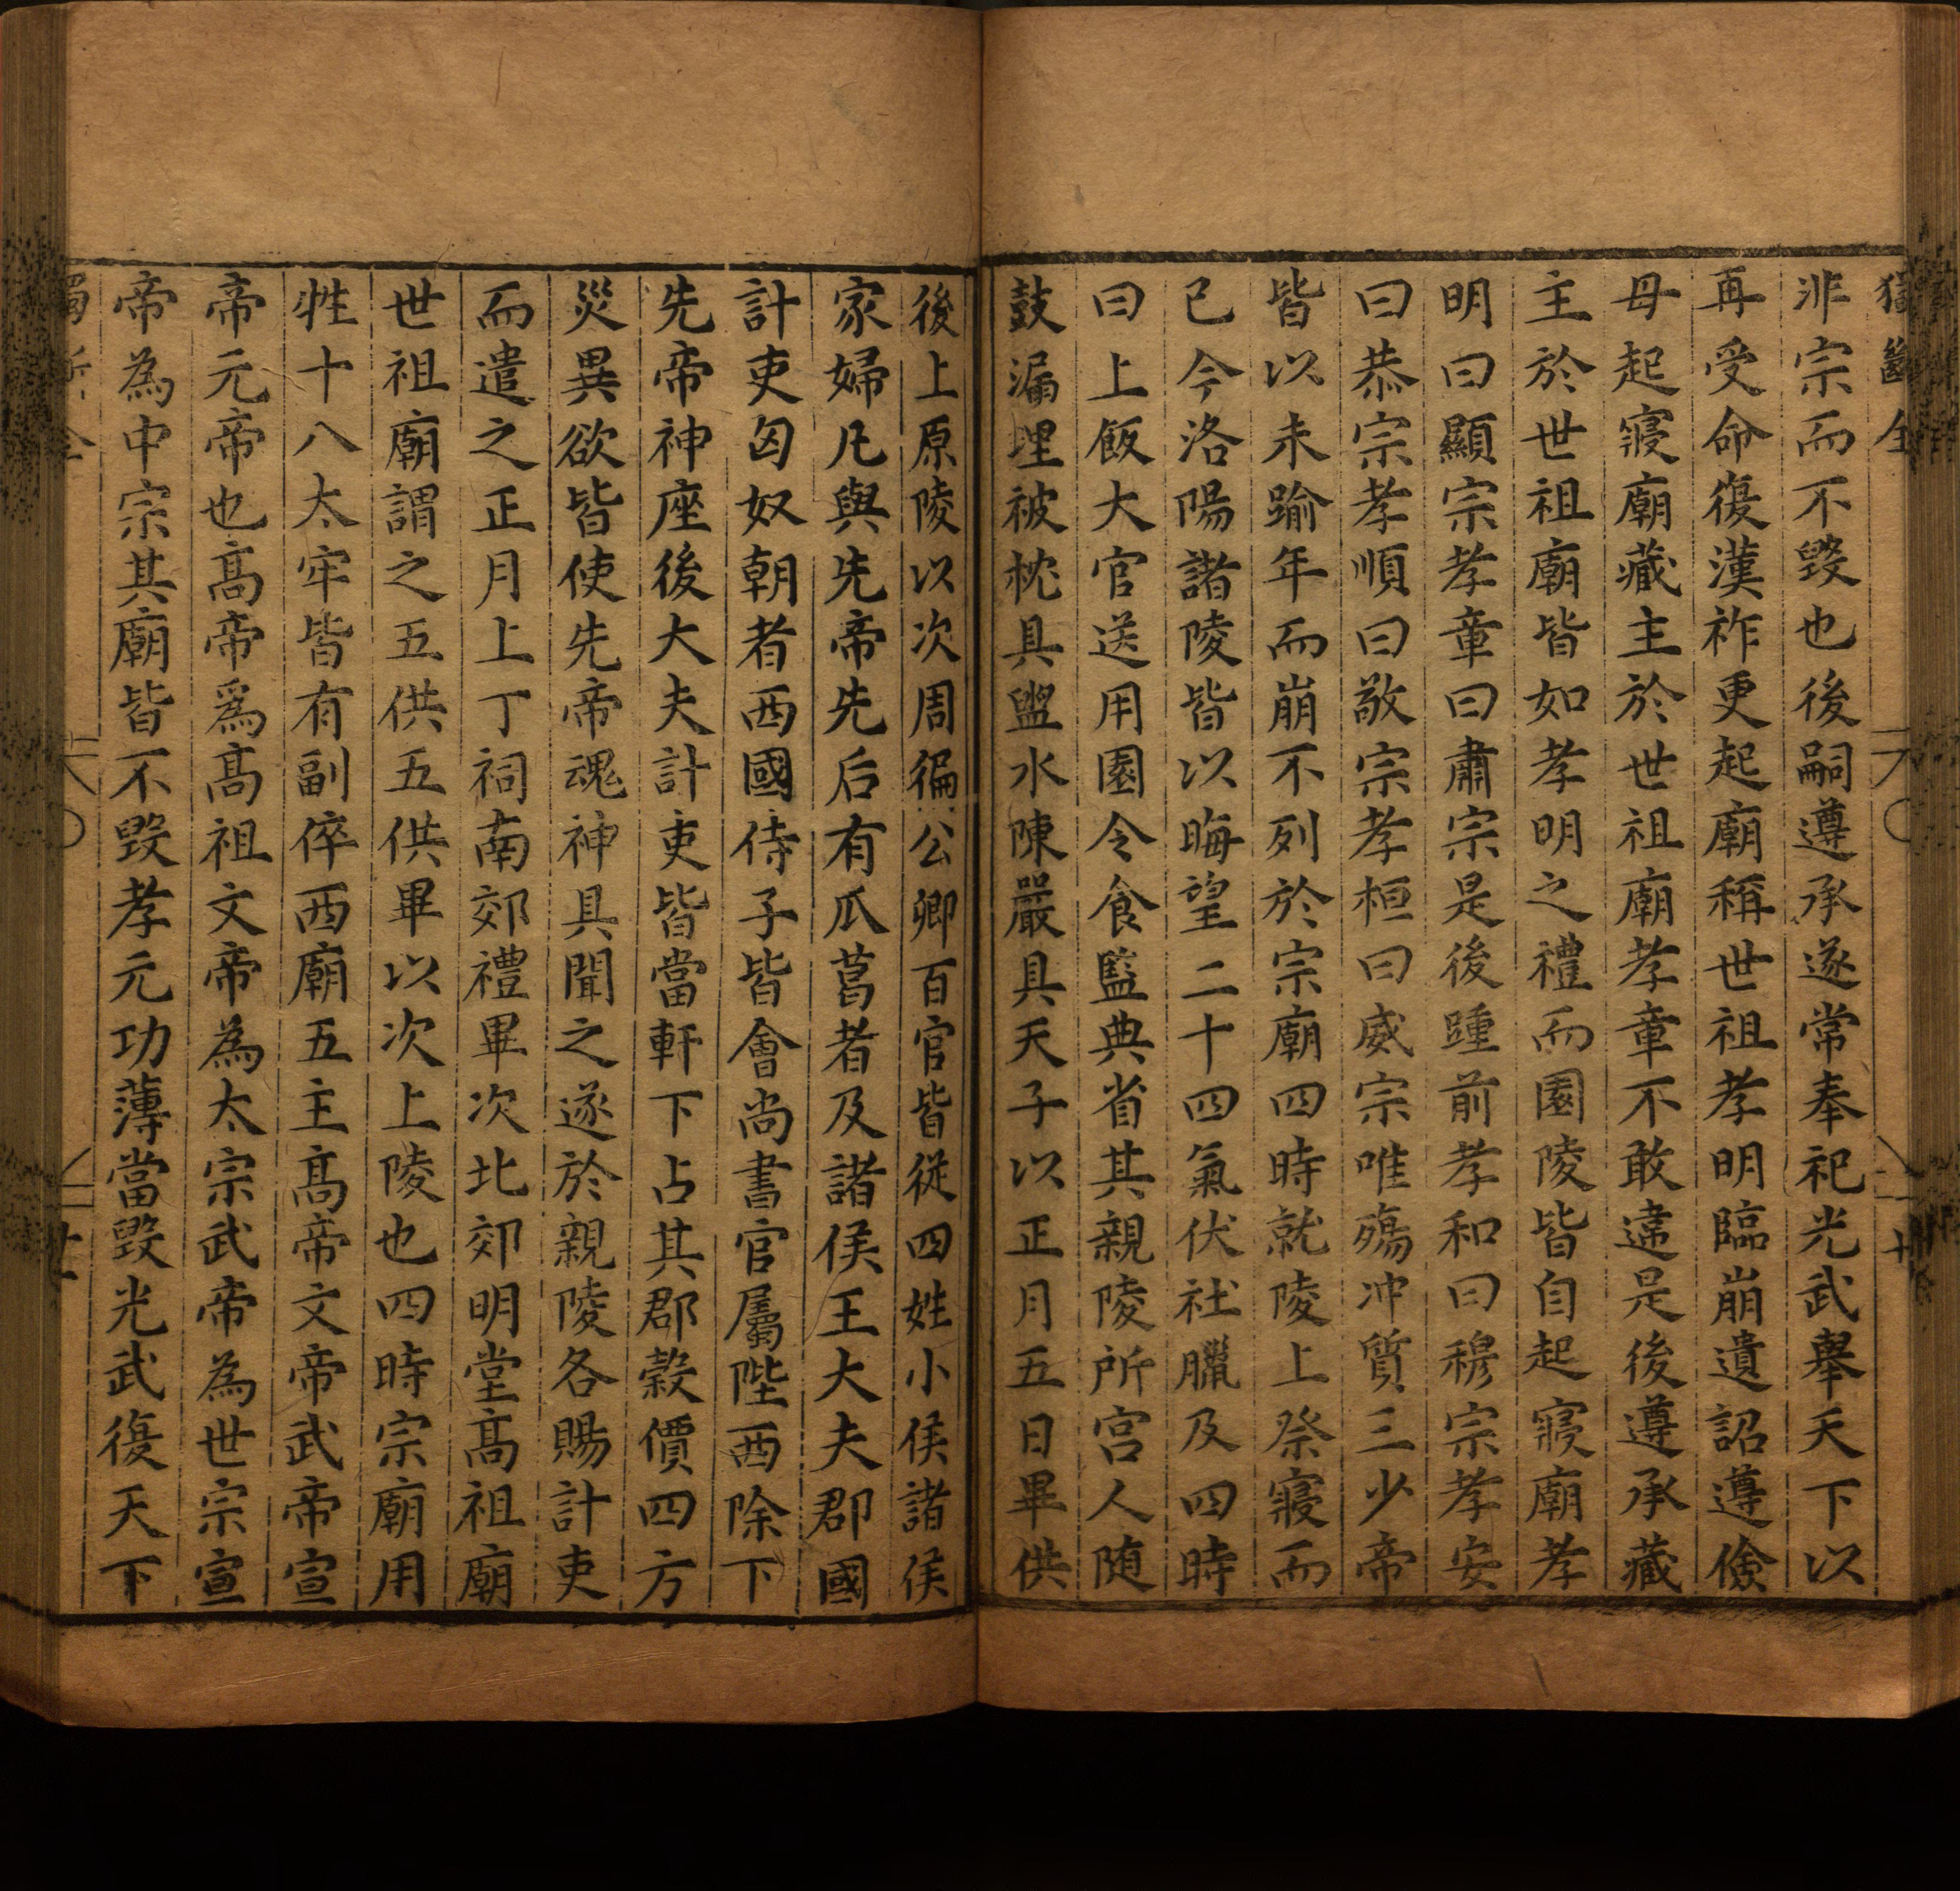 獨斷全
非宗而不毀也後嗣遵承遂常奉祀光武舉天下以
再受命復漢祚更起廟稱世祖孝明臨崩遺詔遵儉
毋起寢廟藏主於世祖廟孝章不敢違是後遵承藏
主於世祖廟皆如孝明之禮而園陵皆自起寢廟孝
明曰顯宗孝章曰肅宗是後踵前孝和曰穆宗孝安
曰恭宗孝順曰敬宗孝桓曰威宗唯殤冲質三少帝
皆以未踰年而崩不列於宗廟四時就陵上祭寢而
已今洛陽諸陵皆以晦望二十四氣伏社臘及四時
日上飯大官送用園令食監典省其親陵所宮人随
鼓漏埋被枕具盥水陳嚴具天子以正月五日畢供
後上原陵以次周徧公卿百官皆從四姓小侯諸侯
家婦凡與先帝先后有瓜葛者及諸侯王大夫郡國
計吏匈奴朝者西國侍子皆會尚書官屬陛西除下
先帝神座後大夫計吏皆當軒下占其郡穀價四方
災異欲皆使先帝魂神具聞之遂於親陵各賜計吏
而遣之正月上丁祠南郊禮畢次北郊明堂高祖廟
世祖廟謂之五供五供畢以次上陵也四時宗廟用
牲十八太牢皆有副倅西廟五主高帝文帝武帝宣
帝元帝也高帝爲高祖文帝為太宗武帝為世宗宣
帝為中宗其廟皆不毀孝元功薄當毀光武復天下